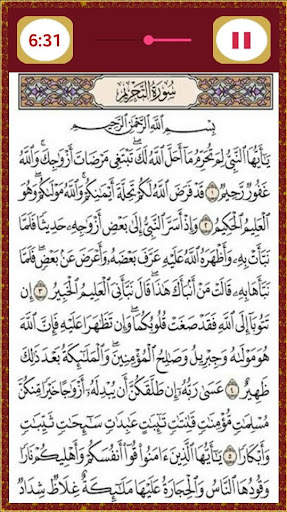 6:31
سُورَةُ التَّحْرِيمِ
بِسْمِ اللَّهِ الرَّحْمَٰنِ الرَّحِيمِ
يَا أَيُّهَا النَّبِيُّ لِمَ تُحَرِّمُ مَا أَحَلَّ اللَّهُ لَكَ ۖ تَبْتَغِي مَرْضَاتَ أَزْوَاجِكَ ۚ وَاللَّهُ
غَفُورٌ رَّحِيمٌ ١ قَدْ فَرَضَ اللَّهُ لَكُمْ تَحِلَّةَ أَيْمَانِكُمْ ۚ وَاللَّهُ مَوْلَاكُمْ ۖ وَهُوَ
الْعَلِيمُ الْحَكِيمُ ٢ وَإِذْ أَسَرَّ النَّبِيُّ إِلَىٰ بَعْضِ أَزْوَاجِهِ حَدِيثًا فَلَمَّا
نَبَّأَتْ بِهِ وَأَظْهَرَهُ اللَّهُ عَلَيْهِ عَرَّفَ بَعْضَهُ وَأَعْرَضَ عَن بَعْضٍ ۖ فَلَمَّا
نَبَّأَهَا بِهِ قَالَتْ مَنْ أَنبَأَكَ هَٰذَا ۖ قَالَ نَبَّأَنِيَ الْعَلِيمُ الْخَبِيرُ ٣ إِن
تَتُوبَا إِلَى اللَّهِ فَقَدْ صَغَتْ قُلُوبُكُمَا ۖ وَإِن تَظَاهَرَا عَلَيْهِ فَإِنَّ اللَّهَ
هُوَ مَوْلَاهُ وَجِبْرِيلُ وَصَالِحُ الْمُؤْمِنِينَ ۖ وَالْمَلَائِكَةُ بَعْدَ ذَٰلِكَ
ظَهِيرٌ ٤ عَسَىٰ رَبُّهُ إِن طَلَّقَكُنَّ أَن يُبْدِلَهُ أَزْوَاجًا خَيْرًا مِّنكُنَّ
مُسْلِمَاتٍ مُّؤْمِنَاتٍ قَانِتَاتٍ تَائِبَاتٍ عَابِدَاتٍ سَائِحَاتٍ ثَيِّبَاتٍ
وَأَبْكَارًا ٥ يَا أَيُّهَا الَّذِينَ آمَنُوا قُوا أَنفُسَكُمْ وَأَهْلِيكُمْ نَارًا
وَقُودُهَا النَّاسُ وَالْحِجَارَةُ عَلَيْهَا مَلَائِكَةٌ غِلَاظٌ شِدَادٌ